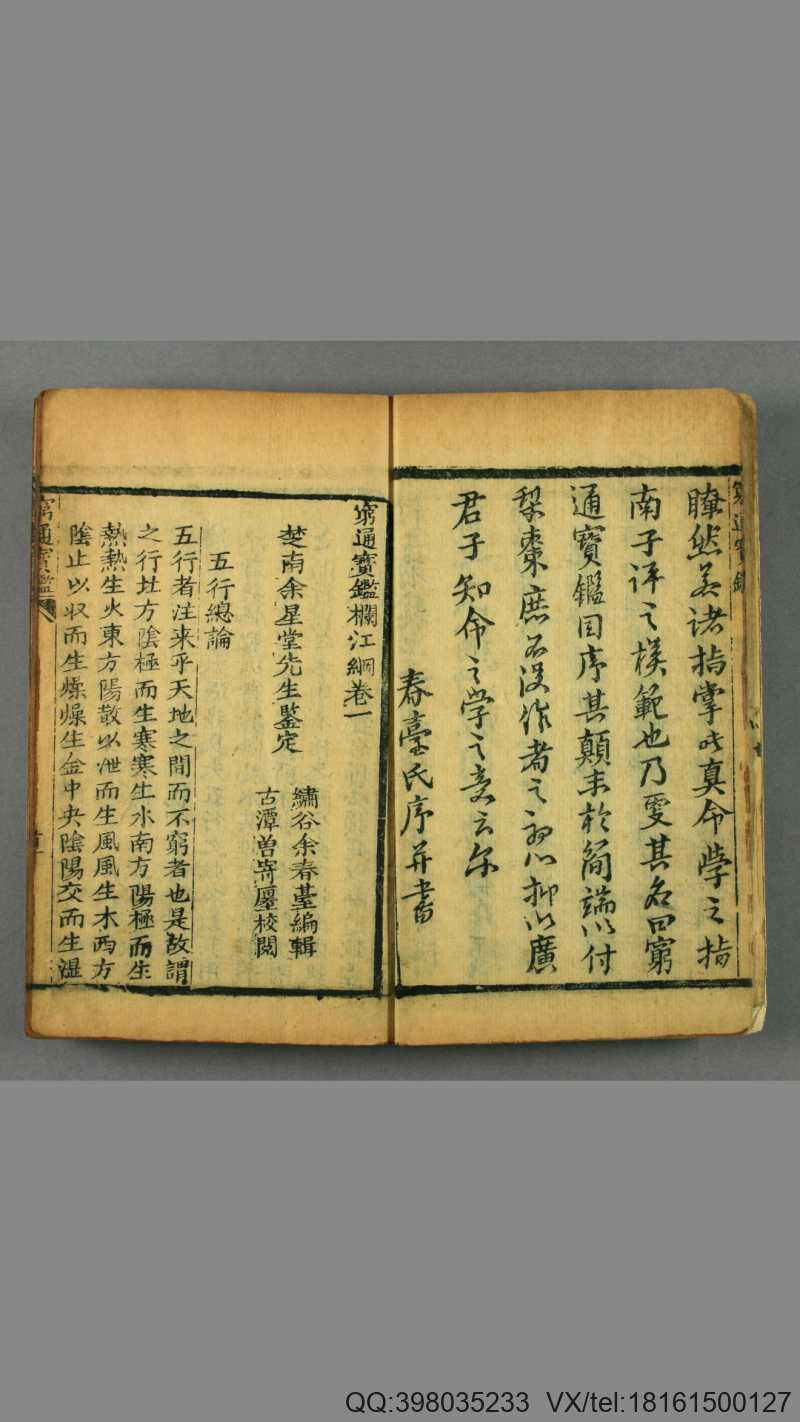 瞭然若諸指掌此真命學之指
南子評之模範也乃更其名曰窮
通寶鑑因序其顛末於簡端以付
梨棗庶不沒作者之心抑以廣
君子知命之學之意云尔
春臺氏序并書
窮通寶鑑欄江綱卷一
楚南余星堂先生鑒定
繡谷余春臺編輯
古潭曽寄廛校閱
五行總論
五行者注来乎天地之間而不窮者也是故謂
之行北方陰極而生寒寒生水南方陽極而生
熱熱生火東方陽散以泄而生風風生木西方
陰止以収而生燥燥生金中央陰陽交而生溫
窮通寶鑑
QQ:398035233 VX/tel:18161500127